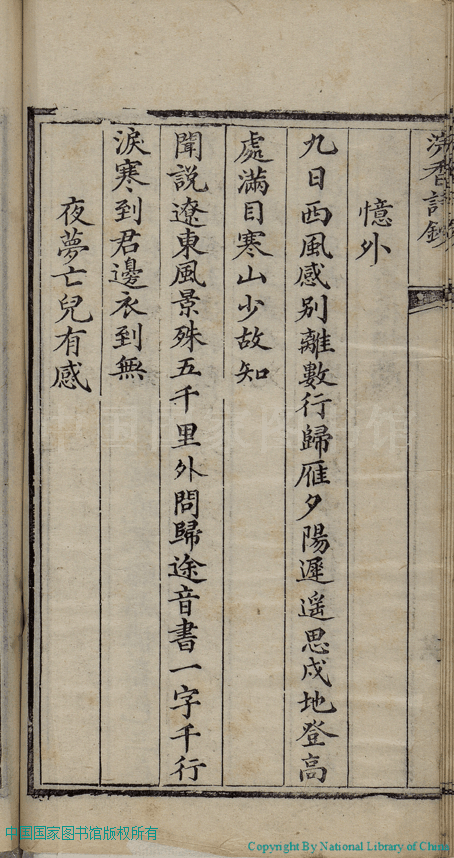 憶外
九日西風感別離數行歸雁夕陽遲遥思戍地登高
處滿目寒山少故知
聞說遼東風景殊五千里外問歸途音書一字千行
淚寒到君邊衣到無
夜夢亡兒有感
中国国家图书馆版权所有
Copyright By National Library of China